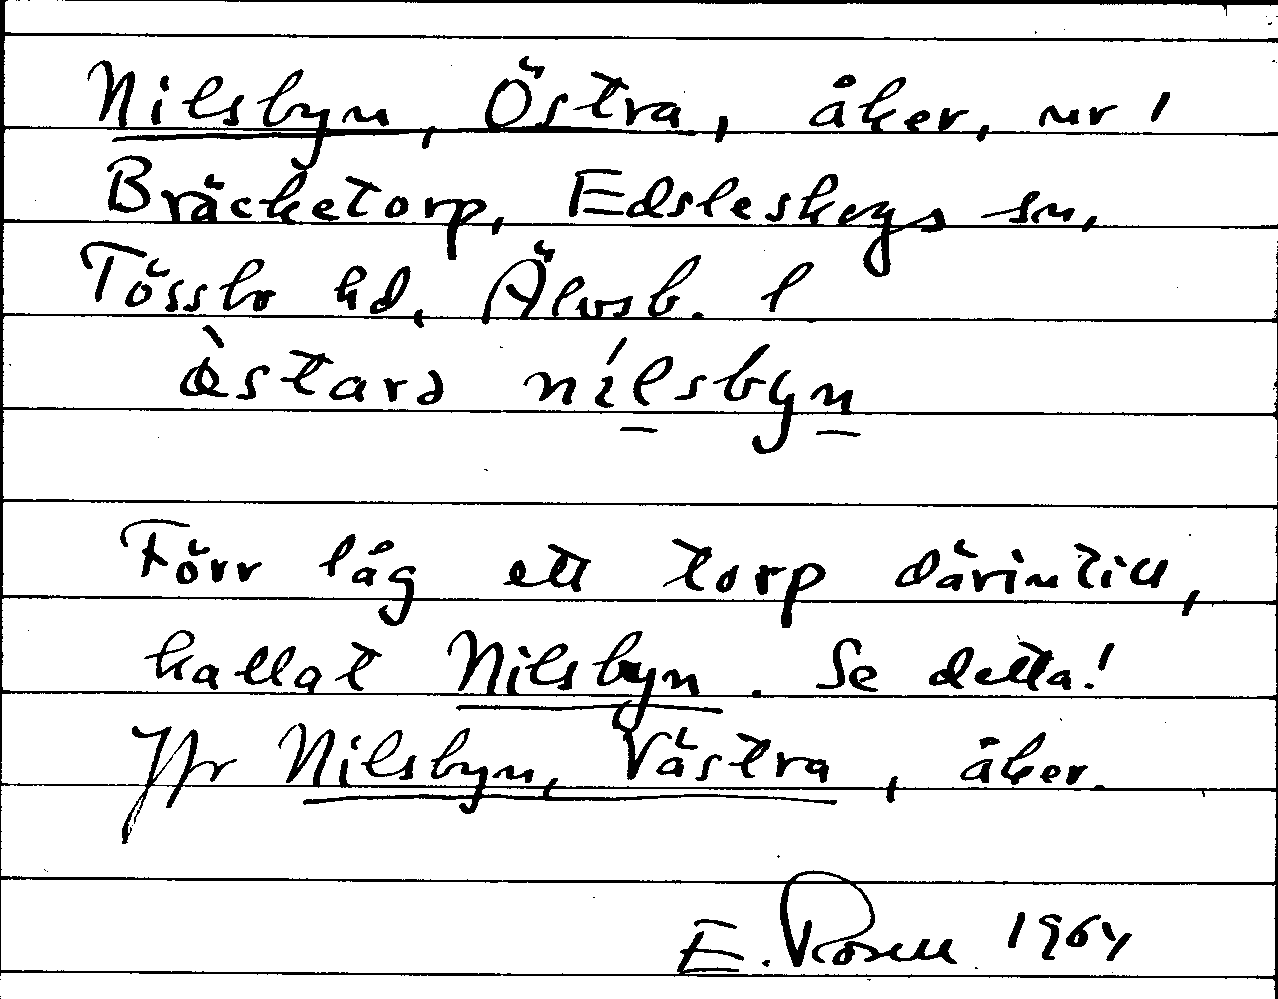 Nilsbyn, Östra, åker, nr 1
Bräcketorp, Edsleskogs sn,
Tössbo hd, Älvsb. l
œ̀starə nílsbyn
Förr låg ett torp därintill,
kallat Nilsbyn. Se detta!
Jfr Nilsbyn, Västra, åker.
E. Rosell 1964